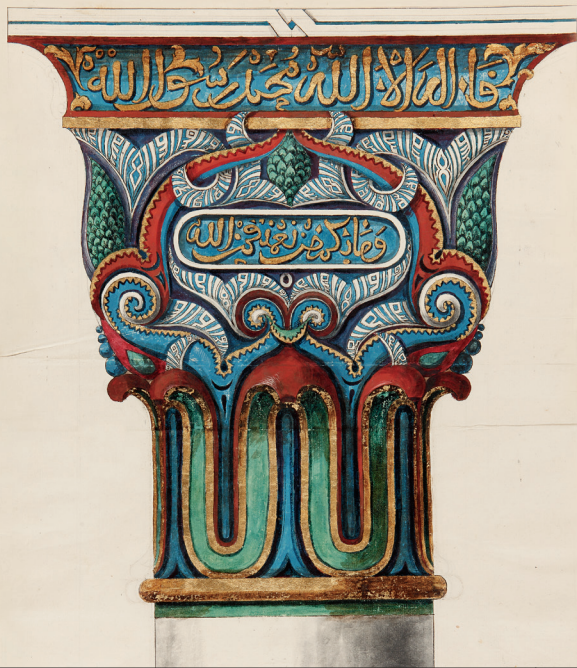 اله الا الله محمد رسول الله
وما بكم من نعمة فمن الله